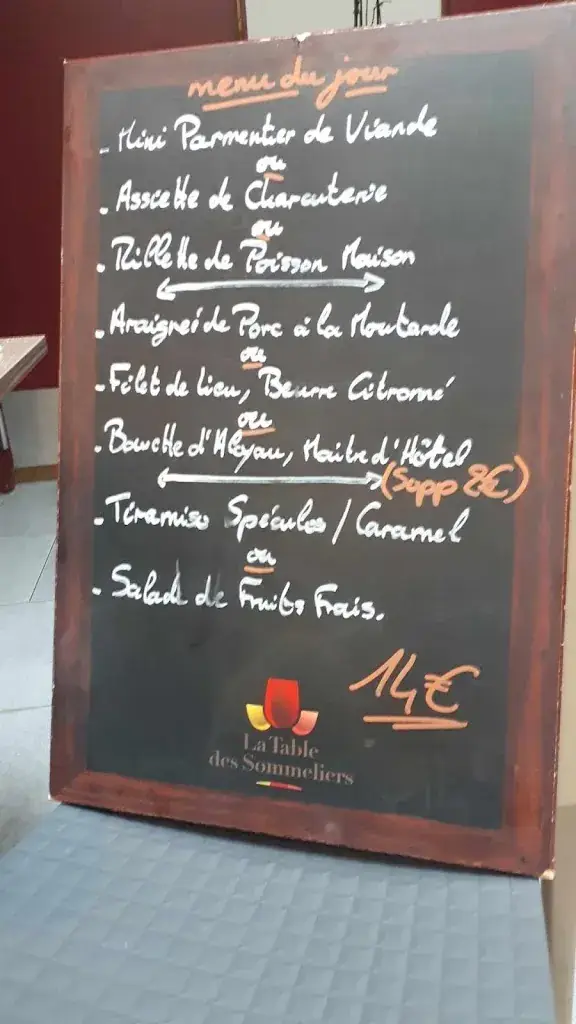 menu du jour
- Mini Parmentier de Viande
ou
. Assiette de Charcuterie
ou
. Rillette de Poisson Maison
. Araignée de Porc à la Moutarde
ou
- Filet de lieu, Beurre Citronné
ou
. Bavette d'Aloyau, Maitre d'Hôtel
(Supp 2€)
. Tiramisu Spéculos / Caramel
ou
. Salade de Fruits Frais.
14€
La Table
des Sommeliers